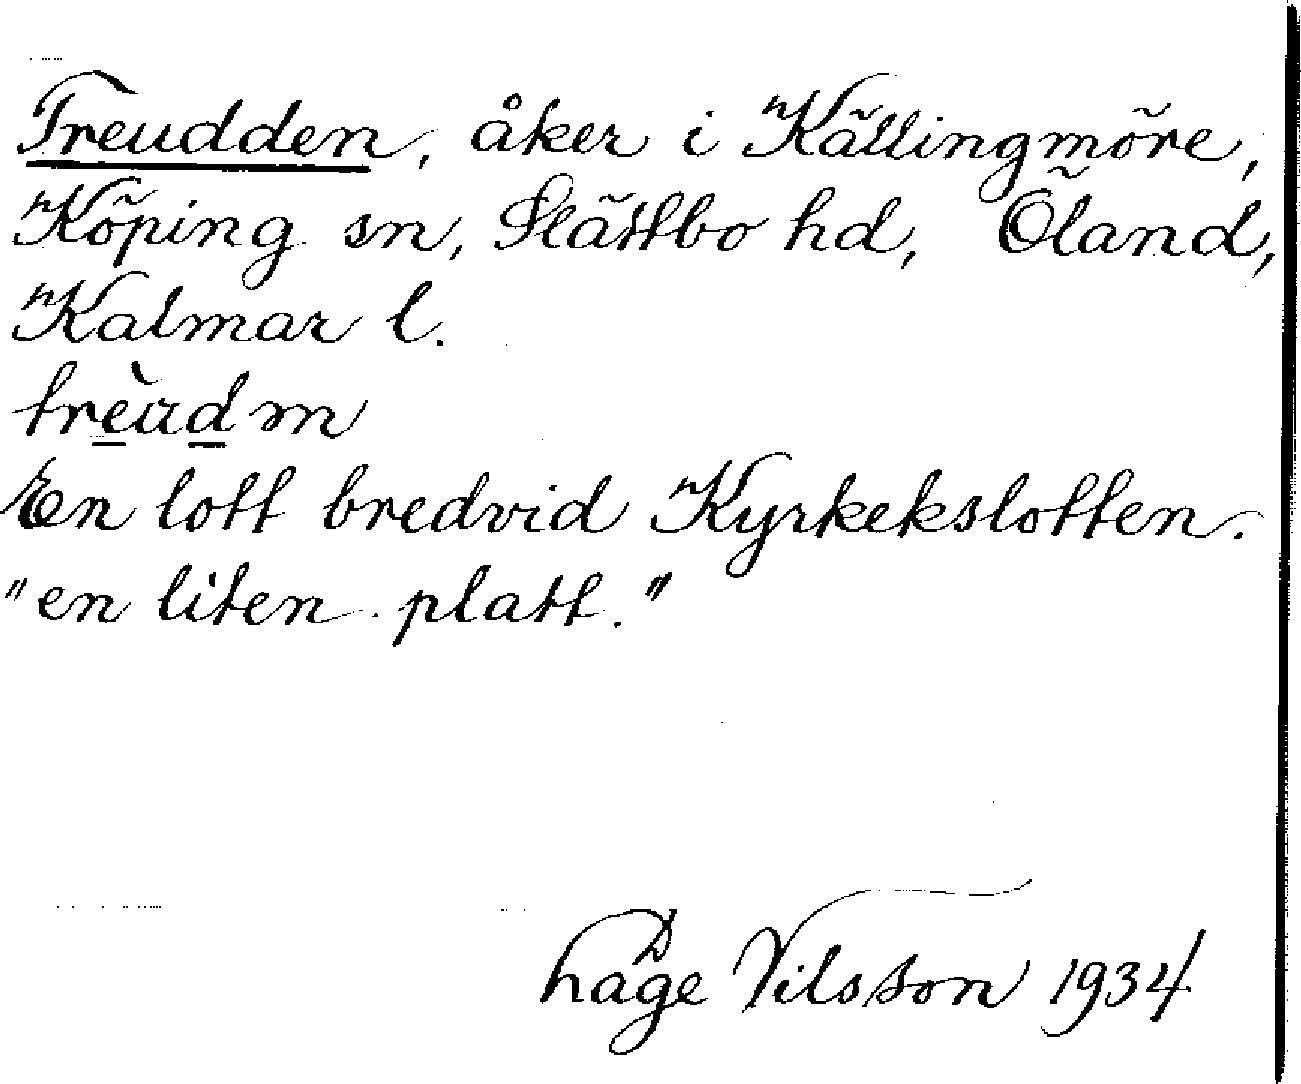 Treudden, åker i Källingmöre,
Köping sn, Slättbo hd, Öland,
Kalmar l.
treudṇ
En lott bredvid Kyrkekslotten.
"en liten platt."
Nilsson 1934